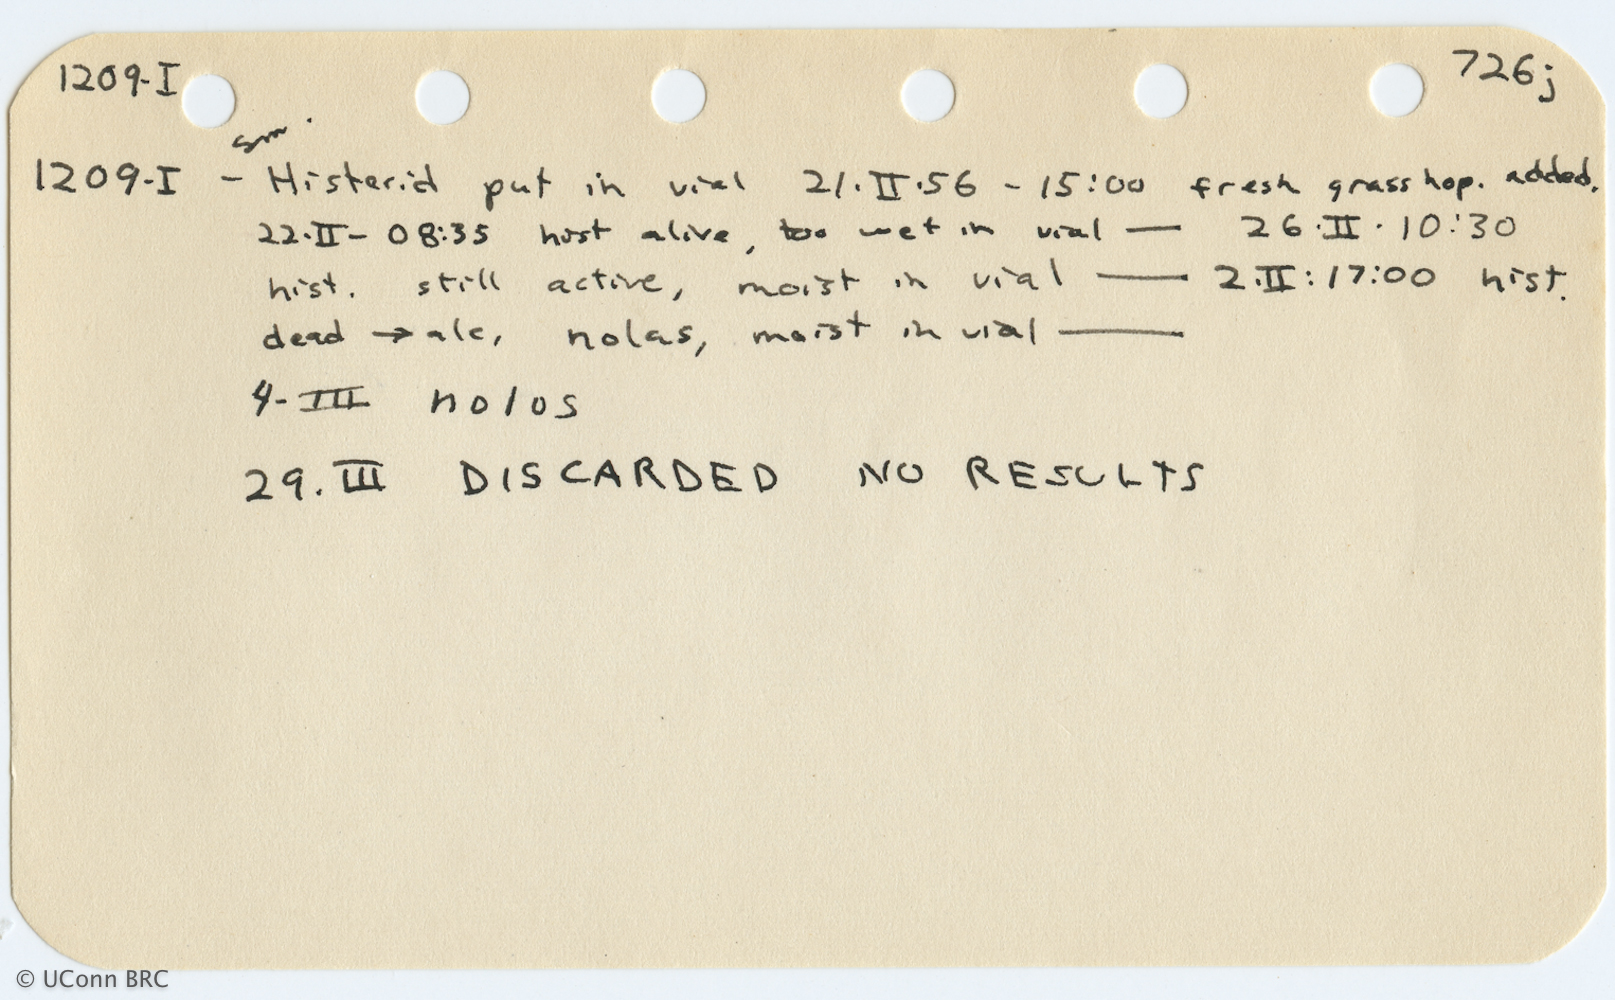 1209-I
726j
sm.
1209-I - Histerid put in vial 21.II.56 - 15:00 fresh grasshop. added.
22.II- 08:35 hist alive, too wet in vial — 26.II.10:30
hist. still active, moist in vial — 2.II:17:00 hist.
dead → alc, nolas, moist in vial —
4-III nolos
29.III DISCARDED NO RESULTS
© UConn BRC